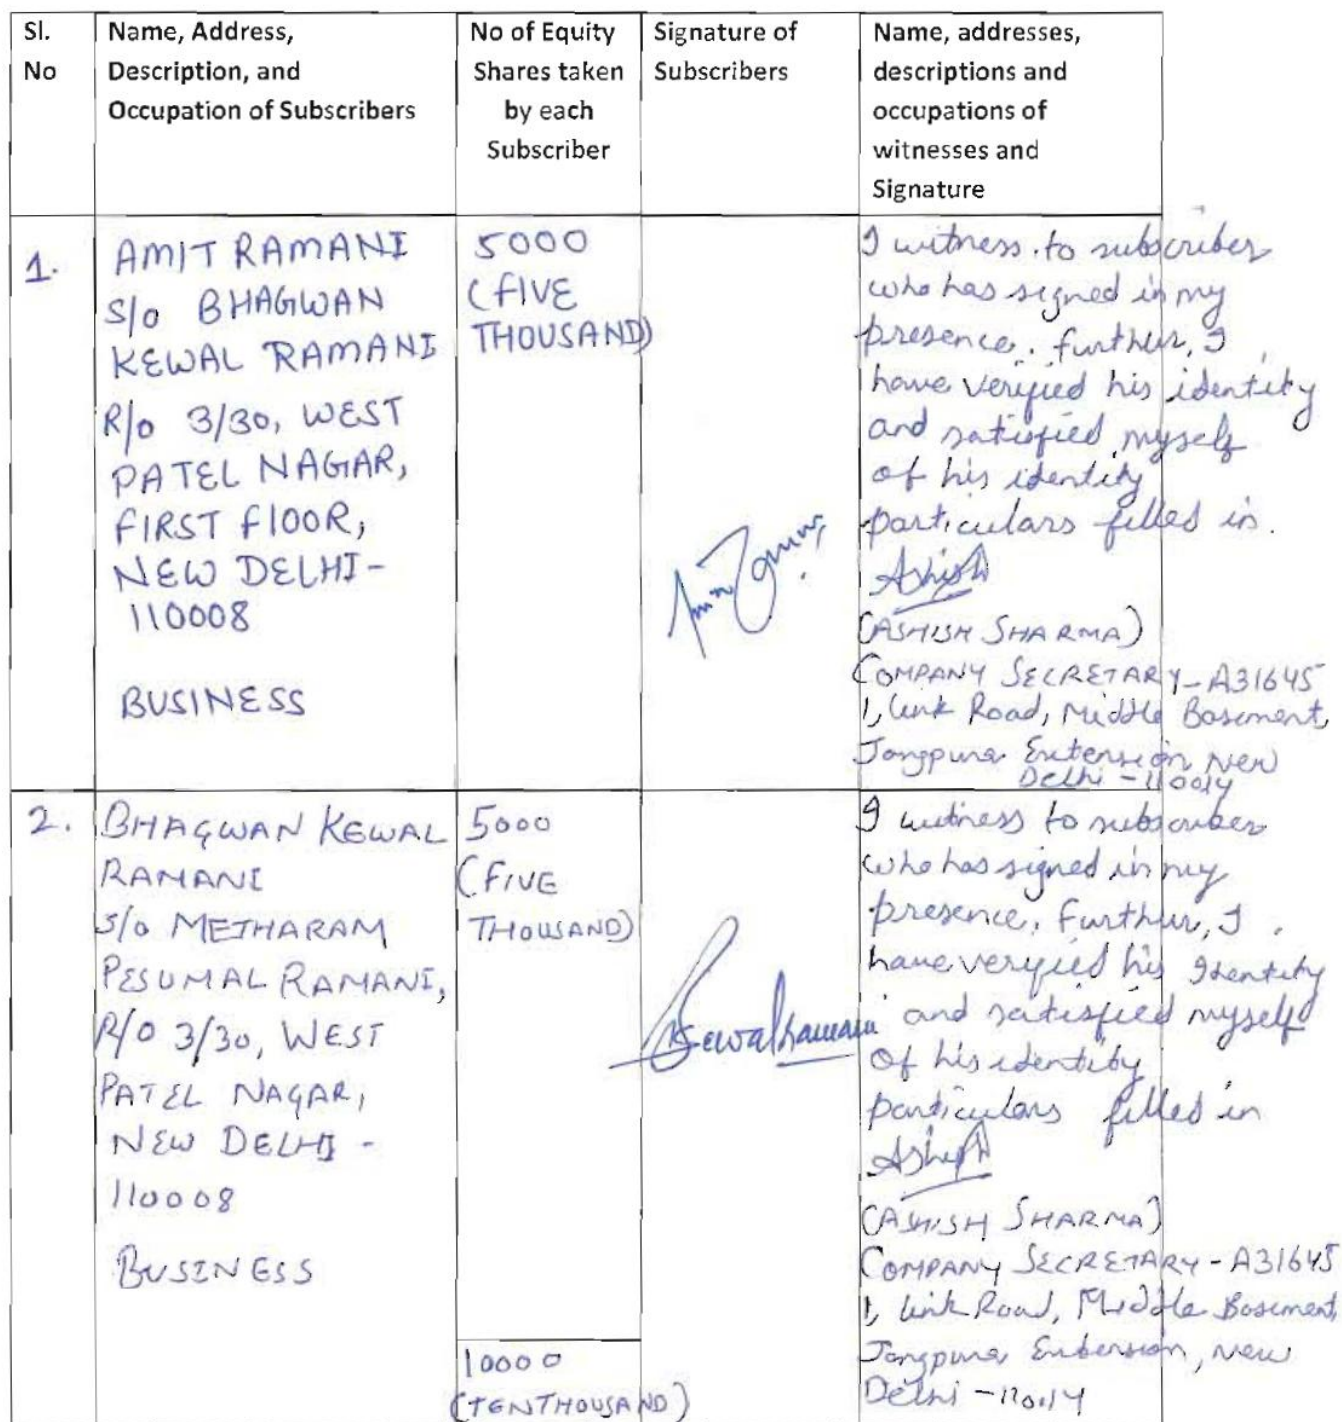 Sl.
No
Name, Address,
Description, and
Occupation of Subscribers
No of Equity
Shares taken
by each
Subscriber
Signature of
Subscribers
Name, addresses,
descriptions and
occupations of
witnesses and
Signature
1.
AMIT RAMANI
S/o BHAGWAN
KEWAL RAMANI
R/o 3/30, WEST
PATEL NAGAR,
FIRST FlOOR,
NEW DELHI-
110008
BUSINESS
5000
(FIVE
THOUSAND)
I witness to subscriber
who has signed in my
presence. further, I
have verified his identity
and satisfied myself
of his identity
particulars filled in.
Ashish
(ASHISH SHARMA)
COMPANY SECRETARY-A31645
1, Link Road, Middle Basement,
Jangpura Extension New
Delhi - 110014
2.
BHAGWAN KEWAL
RAMANI
S/o METHARAM
PESUMAL RAMANI,
R/O 3/30, WEST
PATEL NAGAR,
NEW DELHI -
110008
BUSINESS
5000
(FIVE
THOUSAND)
Kewalramani
I witness to subscriber
who has signed in my
presence, Furthur, I
have verified his Identity
and satisfied myself
of his identity
particulars filled in
Ashish
(ASHISH SHARMA)
COMPANY SECRETARY - A31645
1, Link Road, Middle Basement,
Jangpura Extension, New
Delhi - 110014
10000
(TEN THOUSAND)